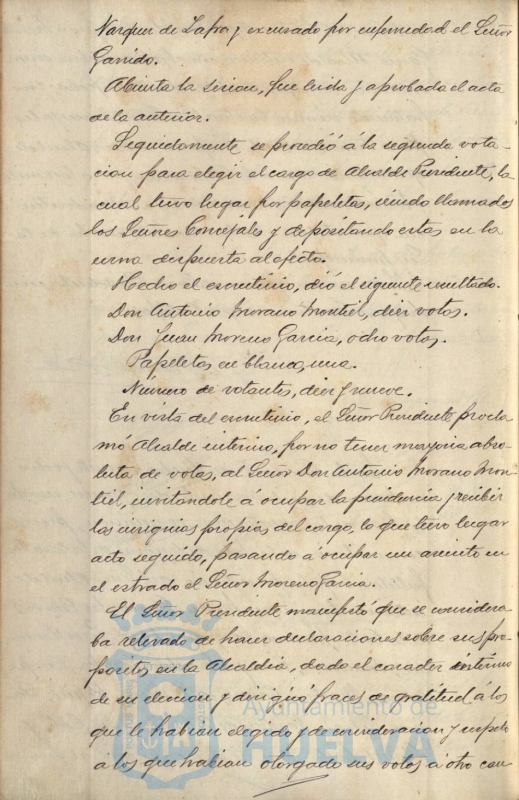 Vazquez de Zafra y excusado por enfermedad el Señor
Garrido.
Abierta la sesion, fue leida y aprobada el acta
de la anterior.
Seguidamente se procedió á la segunda vota-
cion para elegir el cargo de Alcalde Presidente, la
cual tuvo lugar por papeletas, siendo llamados
los Señores Concejales y depositando estas en la
urna dispuesta al efecto.
Hecho el escrutinio, dió el siguiente resultado.
Don Antonio Morano Montiel, diez votos.
Don Juan Moreno Garcia, ocho votos.
Papeletas en blanco, una.
Número de votantes, diez y nueve.
En vista del escrutinio, el Señor Presidente procla
mó Alcalde interino, por no tener mayoria abso-
luta de votos, al Señor Don Antonio Morano Mon-
tiel, invitándole á ocupar la presidencia y recibir
las insignias propias del cargo, lo que tuvo lugar
acto seguido, pasando á ocupar un asiento en
el estrado el Señor Moreno Garcia.
El Señor Presidente manifestó que se considera
ba relevado de hacer declaraciones sobre sus pro-
pósitos en la Alcaldia, dado el caracter interino
de su eleccion y dirigió frases de gratitud á los
que le habian elegido y de consideracion y respeto
á los que habian otorgado sus votos á otro can
Ayuntamiento de
HUELVA